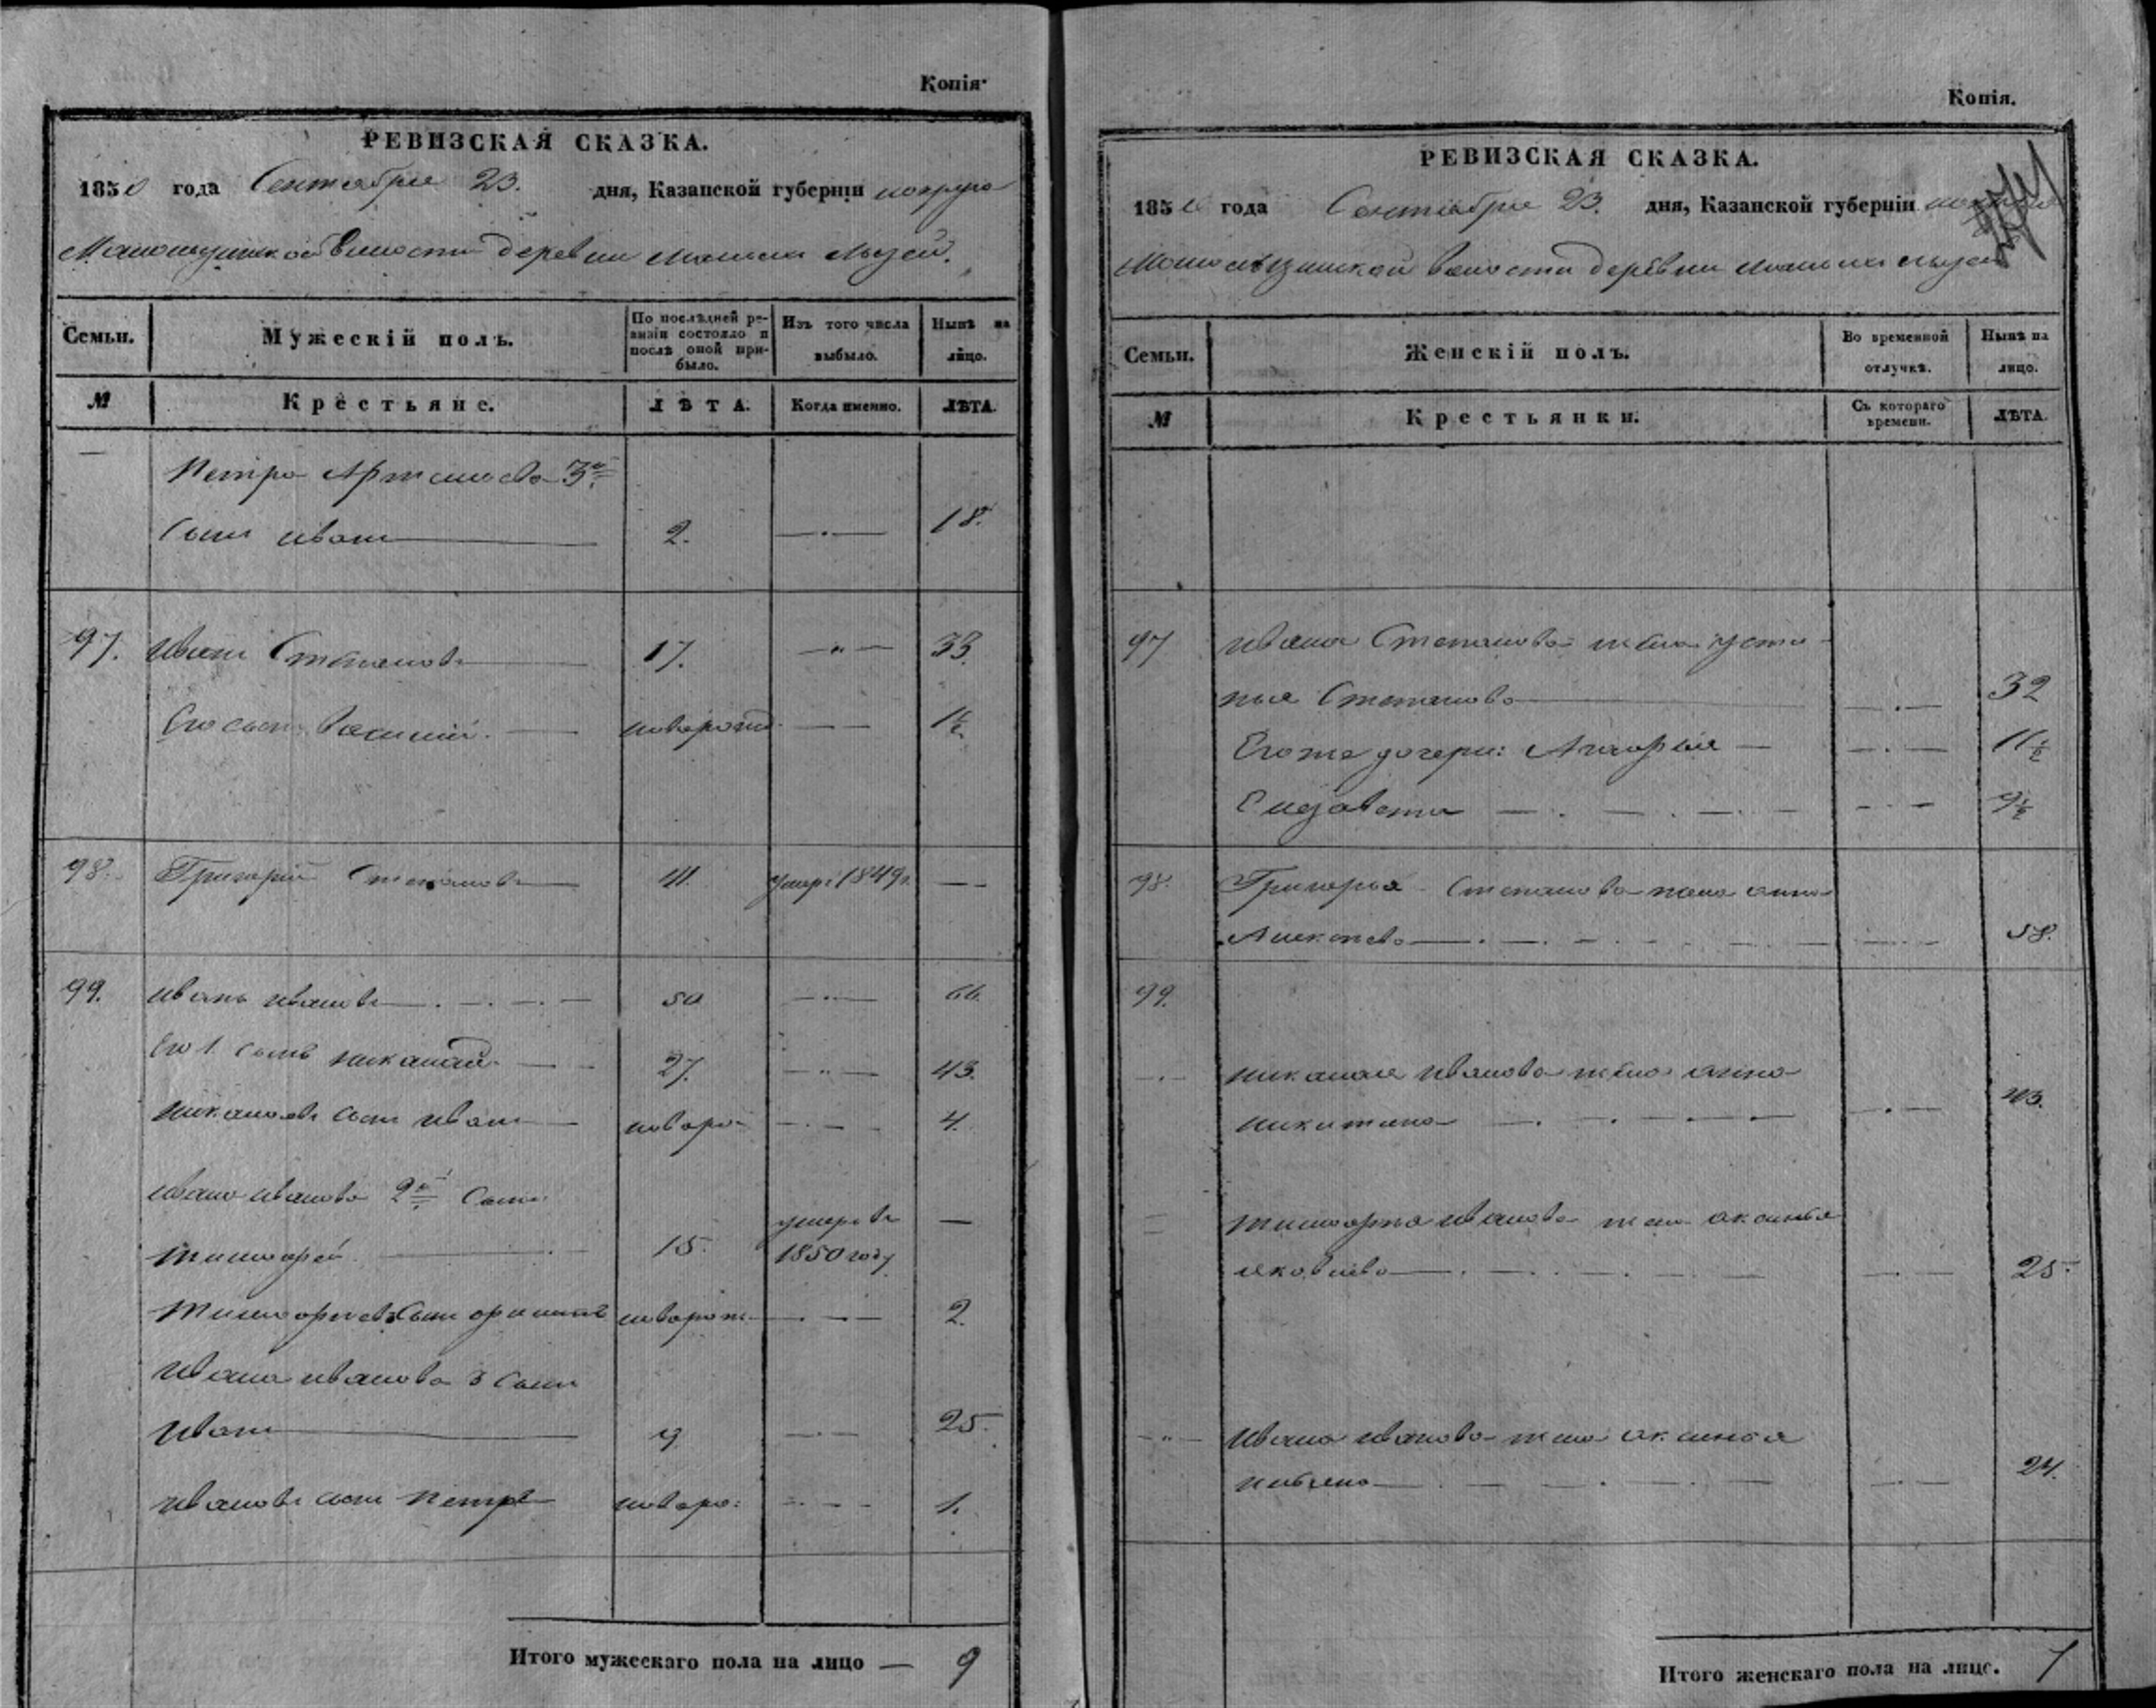 Копія·
РЕВИЗСКАЯ СКАЗКА.
1850 года Сентября 23. дня, Казанской губерніи
волости деревни
Семьи.
Мужескій полъ.
По послѣдней ревизіи состояло и послѣ оной прибыло.
Изъ того числа выбыло.
Нынѣ на лицо.
№
Крестьяне.
ЛѢТА.
Когда именно.
ЛѢТА.
Петра 3й
сынъ иванъ 2. 18.
97. Иванъ Степановъ 17. 33.
Его сынъ Василий. новорожд. 1½
98. Григорий Степановъ 41. умеръ 1849г.
99. иванъ ивановъ 50 66.
Его 1. сынъ николай 27. 43.
николаевъ сынъ иванъ новоро- 4.
ивана иванова 2й сынъ
тимофей 15. умеръ въ 1850 году
тимофеевъ сынъ новорож- 2.
ивана иванова 3 сынъ
иванъ 9 25.
ивановъ сынъ петръ новоро: 1.
Итого мужескаго пола на лицо — 9
Копія.
РЕВИЗСКАЯ СКАЗКА.
1850 года Сентября 23. дня, Казанской губерніи
волости деревни
Семьи.
Женскій полъ.
Во временной отлучкѣ.
Нынѣ на лицо.
№
Крестьянки.
Съ котораго времени.
ЛѢТА.
97 ивана Степанова жена усти-
нья Степанова 32
Его же дочери: 11½
Елизавета 9½
98. Григорья Степанова жена анна
58.
99.
николая иванова жена анна
никитина 43.
тимофея иванова жена аксинья
яковлева 25.
ивана иванова жена аксинья
24.
Итого женскаго пола на лицо. 7